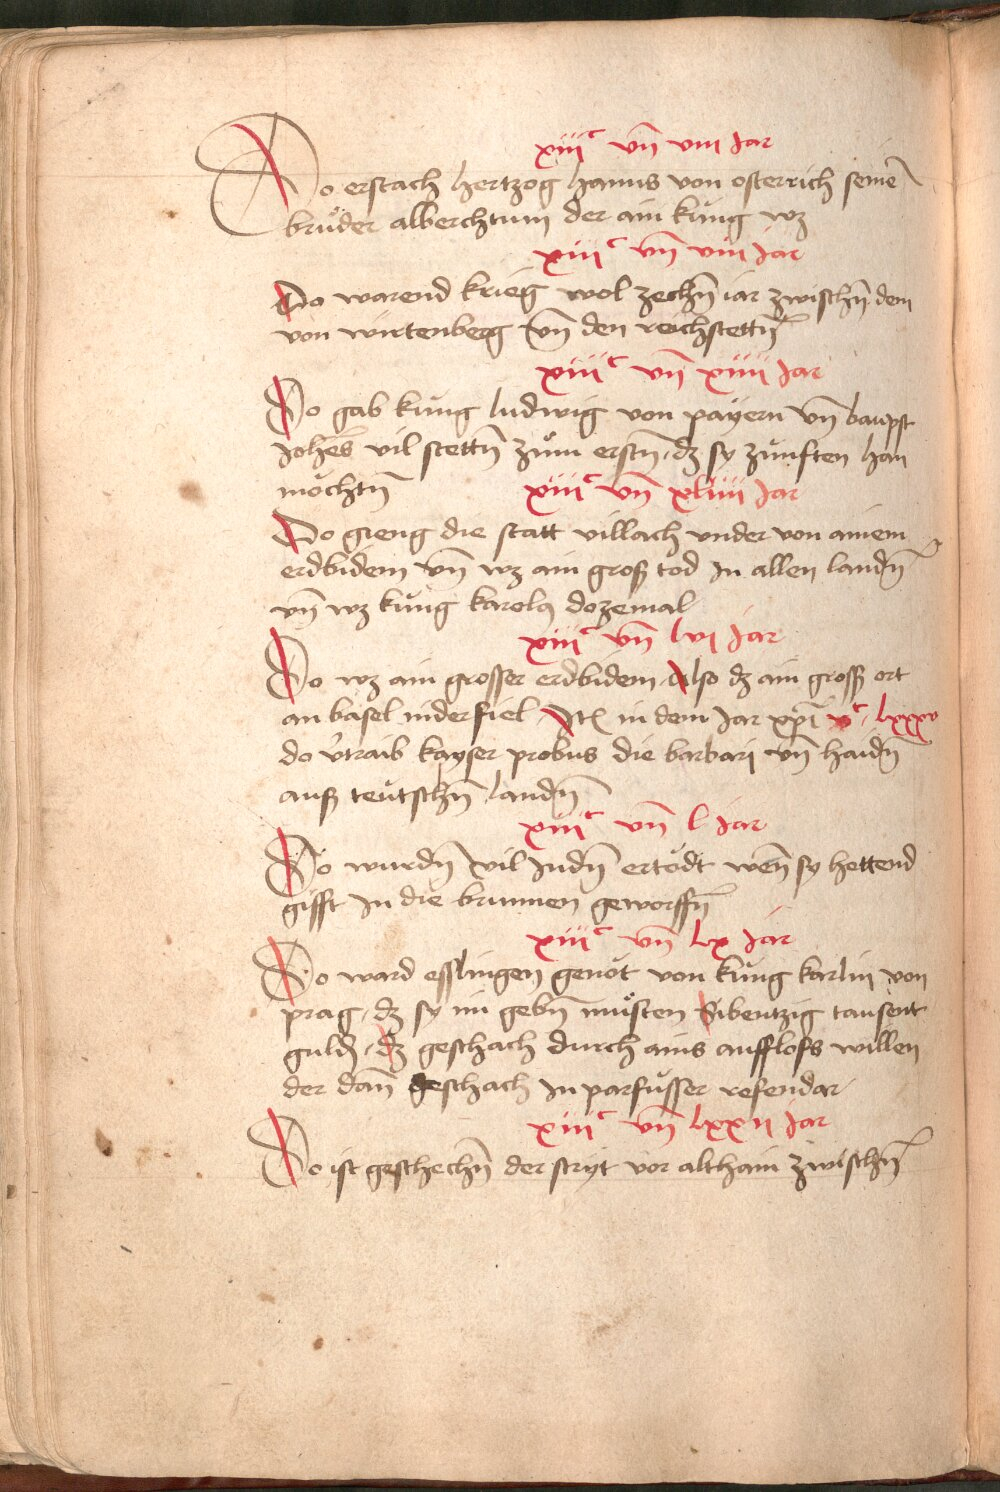 xiiiᶜ vn̄ viii Jar
Do erstach hertzog hanns von osterrich seinē
bruͦder alberchtum der ain kung wz
xiiiᶜ vn̄ viii Jar
Do warend krieg wol zechn̄ iar zwischn̄ dem
von wirtenberg vn̄ den reichstettn̄
xiiiᶜ vn̄ xiiii Jar
Do gab kung ludwig von payern vn̄ baupst
Johēs vil stettn̄ zum erstn̄ / dz sy zünften han
möchtn̄
xiiiᶜ vn̄ xlviii Jar
Do gieng die statt villach vnder von ainem
erdbidem vn̄ wz ain groß tod in allen landn̄
vn̄ wz kung karolꝰ dozemal
xiiiᶜ vn̄ lvi Jar
Do wz ain grosser erdbidem Also dz ain groß ort
an basel niderfiel Itē in dem Jar xp̄i vᶜ lxxxv
do v̓traib kayser probus die barbari vn̄ haidn̄
auß teütschn̄ landn̄
xiiiᶜ vn̄ l Jar
Do wurdn̄ vil Judn̄ ertödt wen̄ sy hettend
gifft in die brunnen geworffn̄
xiiiᶜ vn̄ lx Jar
Do ward esslingen genöt von kung karlin von
prag / dz sy im gebn̄ muͦsten Sibentzig tausent
guldn̄ / dz geschach durch ains aufflofs willen
der dan̄ geschach in parfuͦsser refendar
xiiiᶜ vn̄ lxxii Jar
Do ist geschechn̄ der stryt vor althain zwischn̄